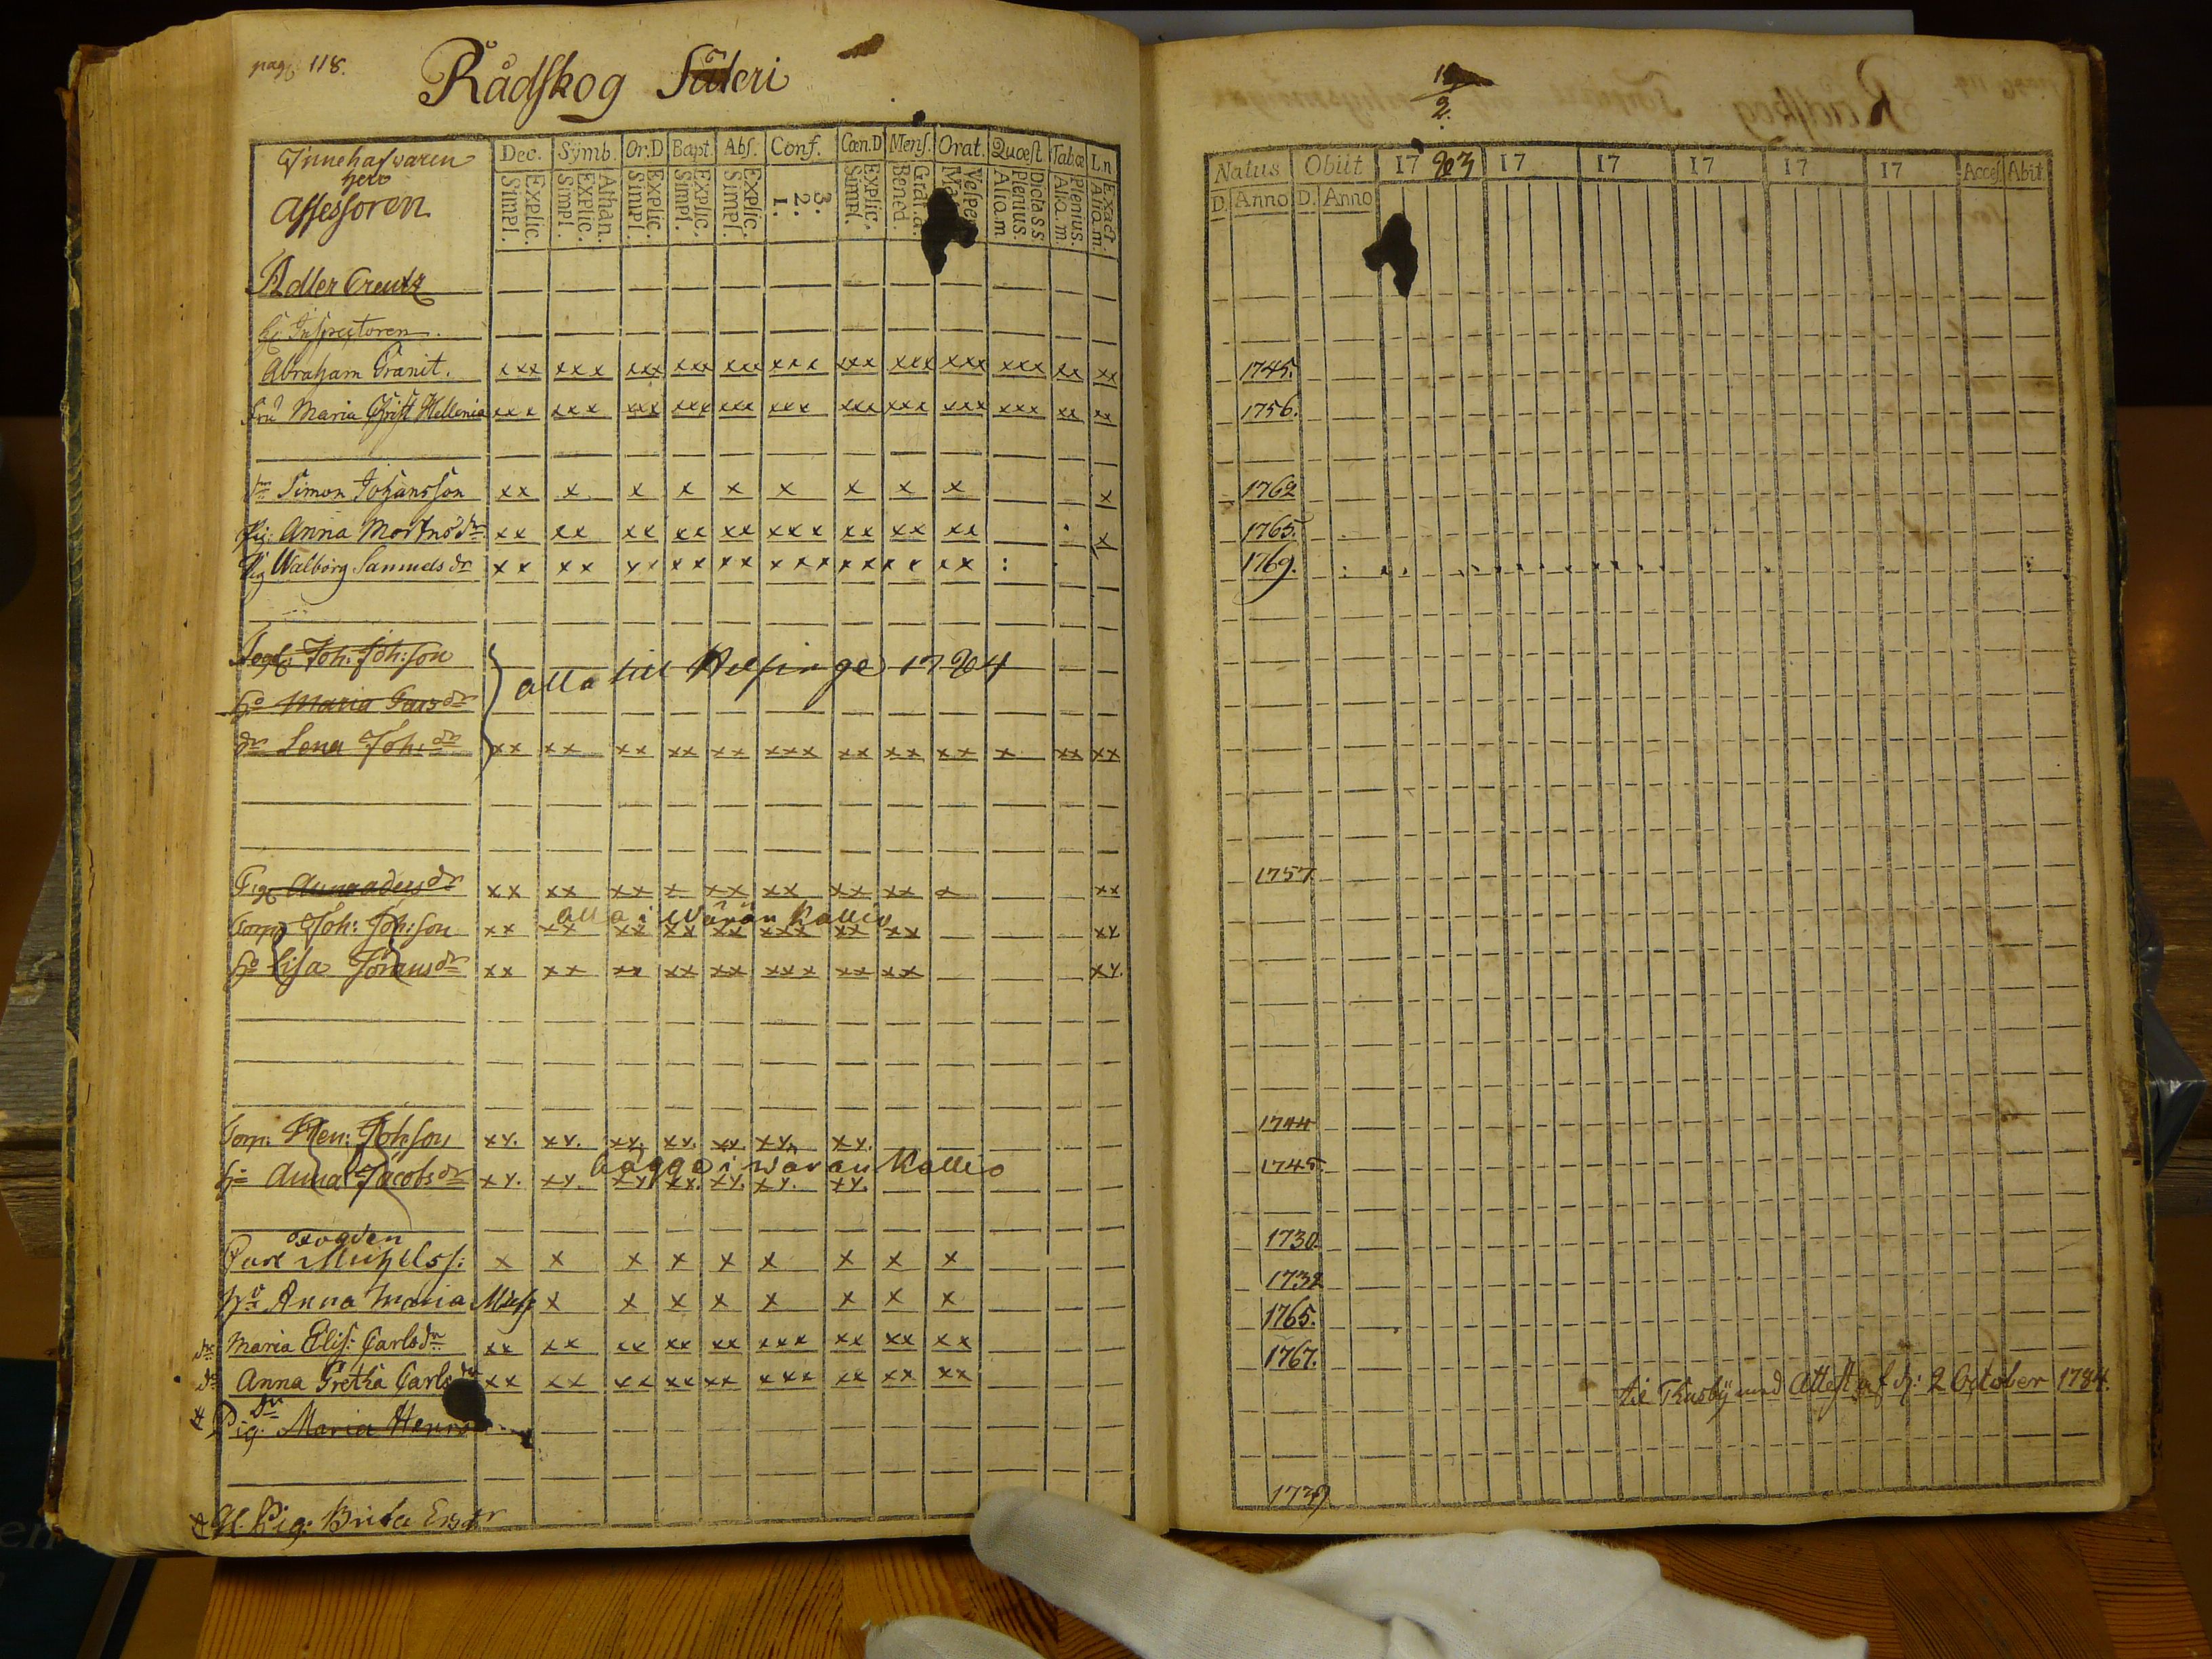 pag. 118.
Rådskog Säteri
Innehafvaren
herr
Assessoren
Dec. Symb. Or.D Bapt. Abs. Conf. Cœn.D Mens. Orat. Quœst Tabœ Ln
Explic. Simpl. Athan. Explic. Simpl. Explic. Simpl. Explic. Simpl. Explic. Simpl. 3. 2. 1. Explic. Simpl. Grat.a. Bened. Dicta s.s Plenius. Alio.m Plenius. Alio.m. Exact Alio.m.
Adler Creutz
Inspectoren.
Abraham Granit. xxx xxx xxx xxx xxx xxx xxx xxx xxx xxx xx xx
Fru Maria Christ Hellenia xxx xxx xxx xxx xxx xxx xxx xxx xxx xxx xx xx
Simon Johansson xx x x x x x x x x x
Pig: Anna Mortns dr xx xx xx xx xx xxx xx xx xx x
Pig Walborg Samuels dr xx xx xx xx xx xxx xx xx xx
Joh: Joh:son
alla till Helsinge 1784
Ho Maria
dr Lena Joh: dr xx xx xx xx xx xxx xx xx xx x xx xx
Pig Anna dr xx xx xx x xx xx xx xx x xx
alla i Wärän Kallio
Torp: Joh: Joh:son xx xx xx xx xx xxx xx xx xx
Ho Lisa Jörans dr xx xx xx xx xx xxx xx xx xx.
Torp: Hen: Joh:son xx. xx. xx. xx. xx. xx. xx.
bägge i wärän Kallio
Ho Anna Jacobs dr xx. xx. xx xx. xx. xx. xx.
Michels s: x x x x x x x x x
Anna Maria x x x x x x x x
dr Maria Elis: Carls dr xx xx xx xx xx xxx xx xx xx
dr Anna Gretha Carls dr xx xx xx xx xx xxx xx xx xx
Pig. Maria
Pig: Brita Ers dr
2.
Natus Obiit 1783 17 17 17 17 17 Acces. Abit.
D. Anno D. Anno
1745.
1756.
1762
1765.
1769.
1757
1744
1745
1730
1732
1765.
1767.
med Attest af d: 2 October 1784.